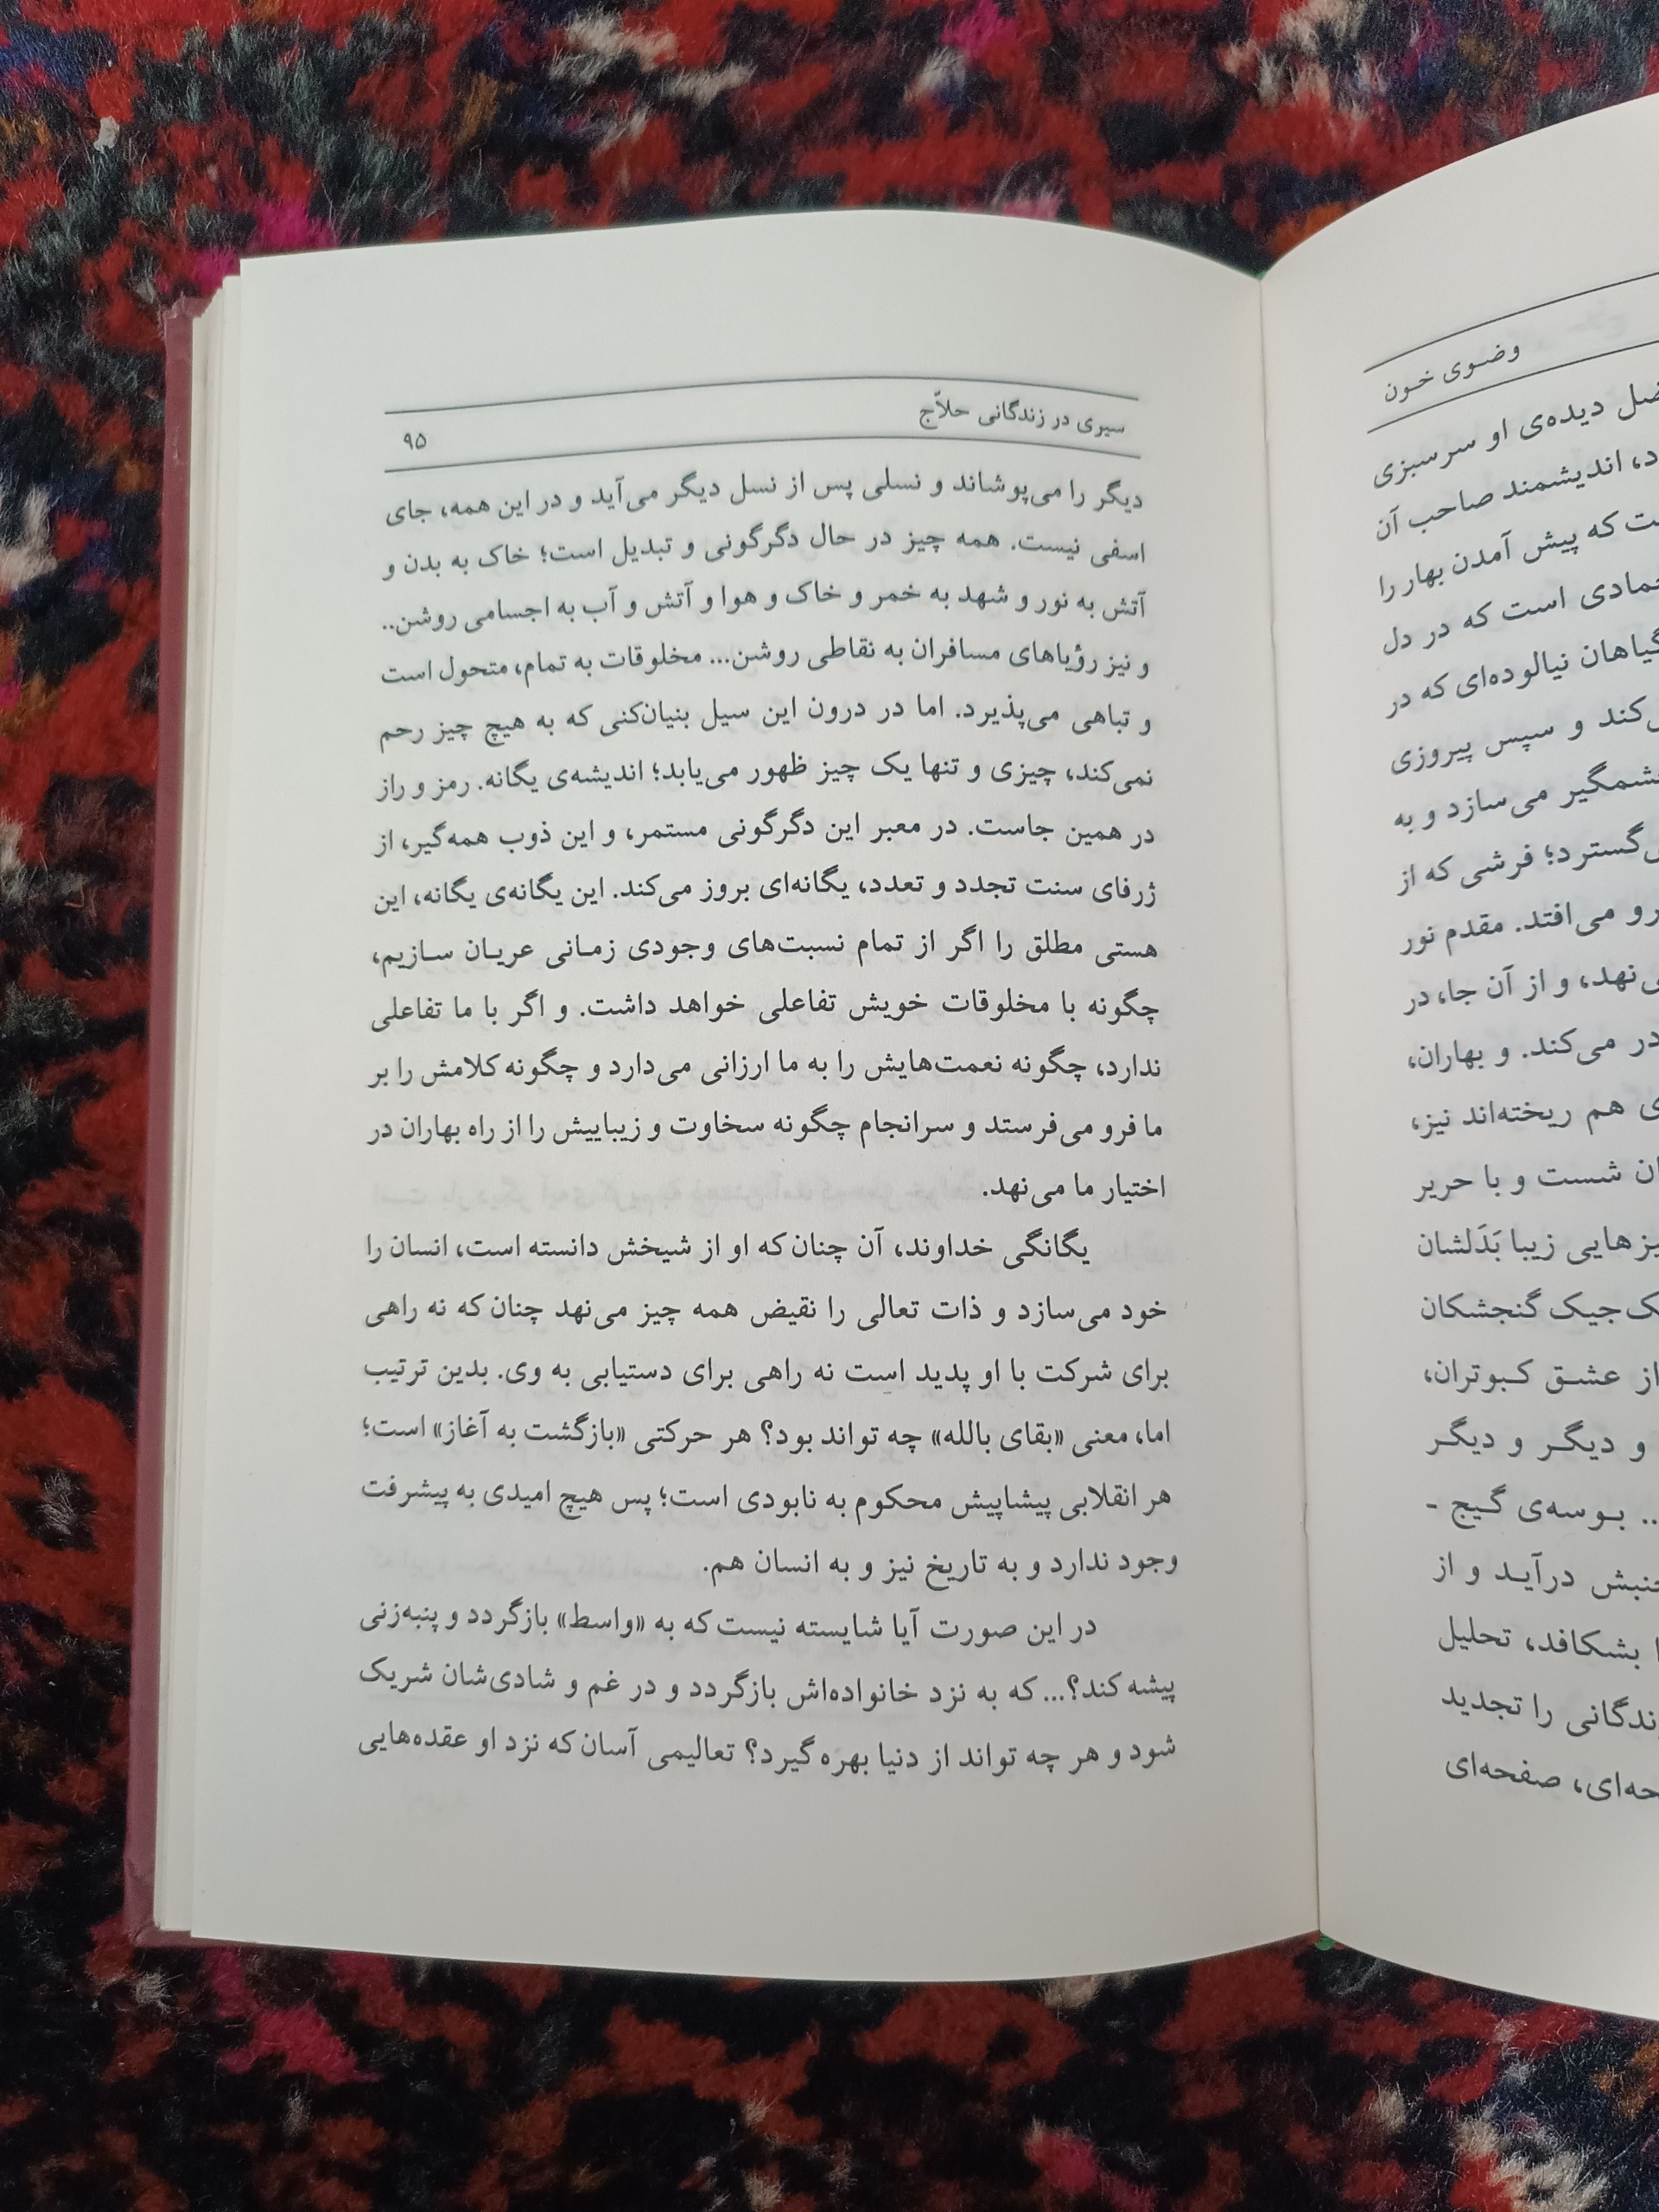 وضوی خون
دیده‌ی او سرسبزی
اندیشمند صاحب آن
که پیش آمدن بهار را
است که در دل
گیاهان نیالوده‌ای که در
و سپس پیروزی
می‌سازد و به
فرشی که از
می‌افتد. مقدم نور
و از آن جا، در
در می‌کند. و بهاران،
هم ریخته‌اند نیز،
شست و با حریر
زیبا بَدَلشان
جیک گنجشکان
از عشق کبوتران،
و دیگر و دیگر
.. بوسه‌ی گیج -
درآید و از
بشکافد، تحلیل
را تجدید
صفحه‌ای
سیری در زندگانی حلاّج
۹۵
دیگر را می‌پوشاند و نسلی پس از نسل دیگر می‌آید و در این همه، جای
اسفی نیست. همه چیز در حال دگرگونی و تبدیل است؛ خاک به بدن و
آتش به نور و شهد به خمر و خاک و هوا و آتش و آب به اجسامی روشن..
و نیز رؤیاهای مسافران به نقاطی روشن... مخلوقات به تمام، متحول است
و تباهی می‌پذیرد. اما در درون این سیل بنیان‌کنی که به هیچ چیز رحم
نمی‌کند، چیزی و تنها یک چیز ظهور می‌یابد؛ اندیشه‌ی یگانه. رمز و راز
در همین جاست. در معبر این دگرگونی مستمر، و این ذوب همه‌گیر، از
ژرفای سنت تجدد و تعدد، یگانه‌ای بروز می‌کند. این یگانه‌ی یگانه، این
هستی مطلق را اگر از تمام نسبت‌های وجودی زمانی عریان سازیم،
چگونه با مخلوقات خویش تفاعلی خواهد داشت. و اگر با ما تفاعلی
ندارد، چگونه نعمت‌هایش را به ما ارزانی می‌دارد و چگونه کلامش را بر
ما فرو می‌فرستد و سرانجام چگونه سخاوت و زیباییش را از راه بهاران در
اختیار ما می‌نهد.
یگانگی خداوند، آن چنان که او از شیخش دانسته است، انسان را
خود می‌سازد و ذات تعالی را نقیض همه چیز می‌نهد چنان که نه راهی
برای شرکت با او پدید است نه راهی برای دستیابی به وی. بدین ترتیب
اما، معنی «بقای بالله» چه تواند بود؟ هر حرکتی «بازگشت به آغاز» است؛
هر انقلابی پیشاپیش محکوم به نابودی است؛ پس هیچ امیدی به پیشرفت
وجود ندارد و به تاریخ نیز و به انسان هم.
در این صورت آیا شایسته نیست که به «واسط» بازگردد و پنبه‌زنی
پیشه کند؟... که به نزد خانواده‌اش بازگردد و در غم و شادی‌شان شریک
شود و هر چه تواند از دنیا بهره گیرد؟ تعالیمی آسان که نزد او عقده‌هایی